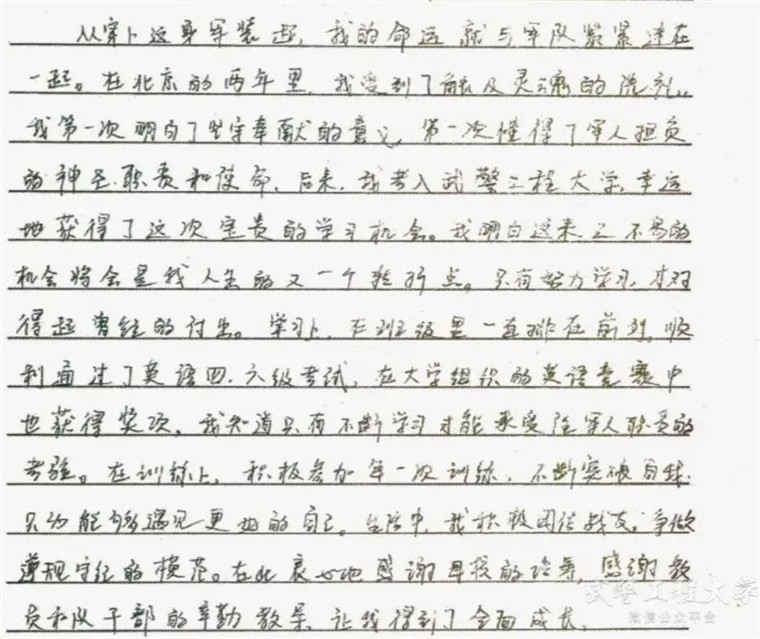 从穿上这身军装起，我的命运就与军队紧紧连在
一起。在北京的两年里，我受到了触及灵魂的洗礼。
我第一次明白了坚守奉献的意义，第一次懂得了军人担负
的神圣职责和使命。后来，我考入武警工程大学，幸运
地获得了这次宝贵的学习机会。我明白这来之不易的
机会将会是我人生的又一个转折点。只有努力学习，才对
得起曾经的付出。学习上，在班级里一直排在前列，顺
利通过了英语四、六级考试，在大学组织的英语竞赛中
也获得奖项，我知道只有不断学习才能承受住军人职责的
考验。在训练上，积极参加每一次训练，不断突破自我，
只为能够遇见更好的自己。生活中，我积极团结战友，争做
遵规守纪的模范。在此衷心地感谢母校的培养，感谢教
员和队干部的辛勤教导，让我得到了全面成长。
武警工程大学
微信公众平台